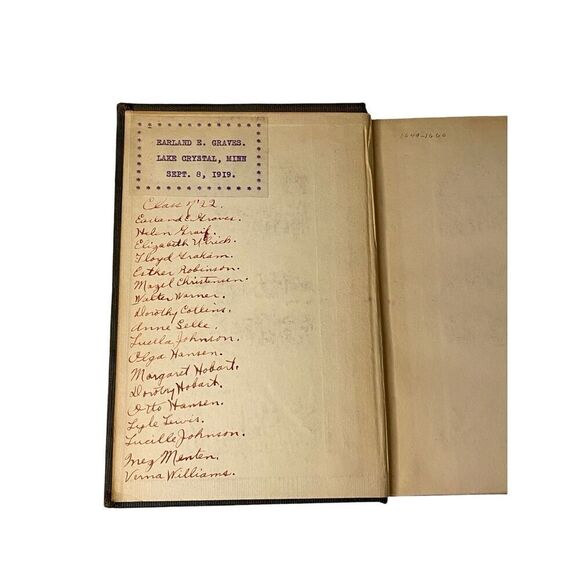 EARLAND E. GRAVES.
LAKE CRYSTAL, MINN
SEPT. 8, 1919.
Class of '22.
Earland E. Graves.
Helen Graif.
Elizabeth Ulrich.
Floyd Graham.
Esther Robinson.
Mazel Christensen.
Walter Warner.
Dorothy Collins.
Anne Selle.
Luella Johnson.
Olga Hansen.
Margaret Hobart.
Dorothy Hobart.
Otto Hansen.
Lyle Lewis.
Lucille Johnson.
Inez Menten.
Verna Williams.
1649-1660